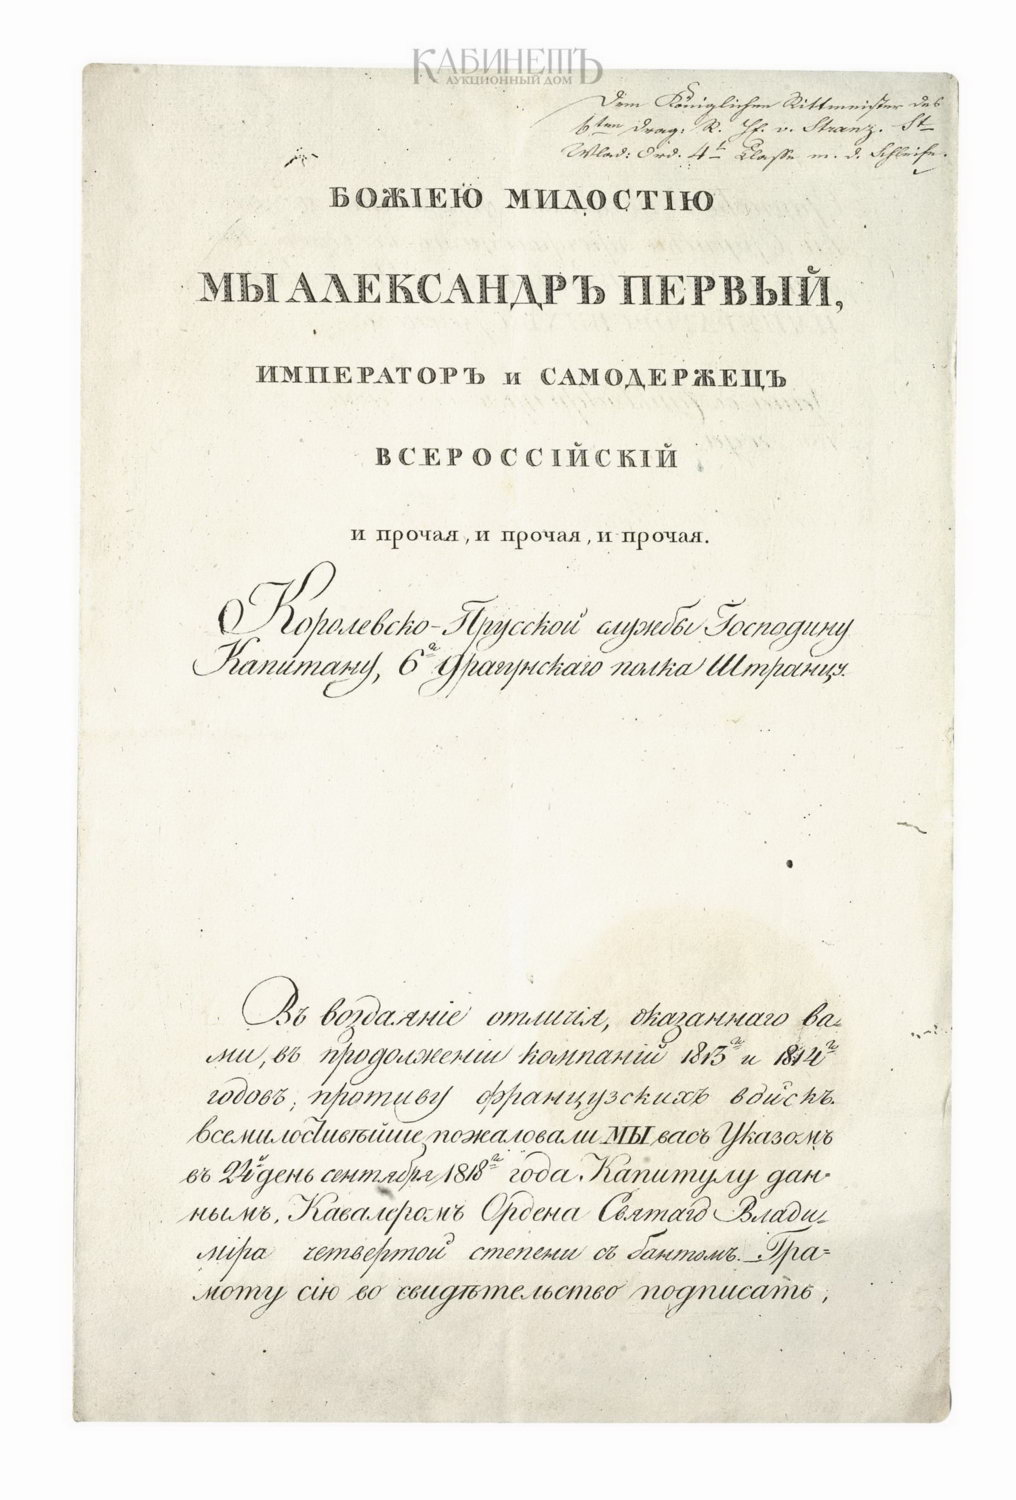 КАБИНЕТЪ
АУКЦИОННЫЙ ДОМ
Dem Königlichen Rittmeister des
6ten Drag: R. H. v. Stranz. St
Wlad: Ord. 4t Classe m. d. Schleife.
БОЖІЕЮ МИЛОСТІЮ
МЫ АЛЕКСАНДРЪ ПЕРВЫЙ,
ИМПЕРАТОРЪ и САМОДЕРЖЕЦЪ
ВСЕРОССІЙСКІЙ
и прочая, и прочая, и прочая.
Королевско-Прусской службы Господину
Капитану, 6го Драгунскаго полка Штранцъ.
Въ воздаяніе отличія, оказаннаго ва-
ми, въ продолженіи компаній 1813го и 1814го
годовъ, противу французскихъ войскъ.
всемилостивѣйше пожаловали МЫ васъ Указомъ
въ 24й день сентября 1818го года Капитулу дан-
нымъ, Кавалеромъ Ордена Святаго Влади-
міра четвертой степени съ бантомъ. Гра=
моту сію во свидѣтельство подписать,